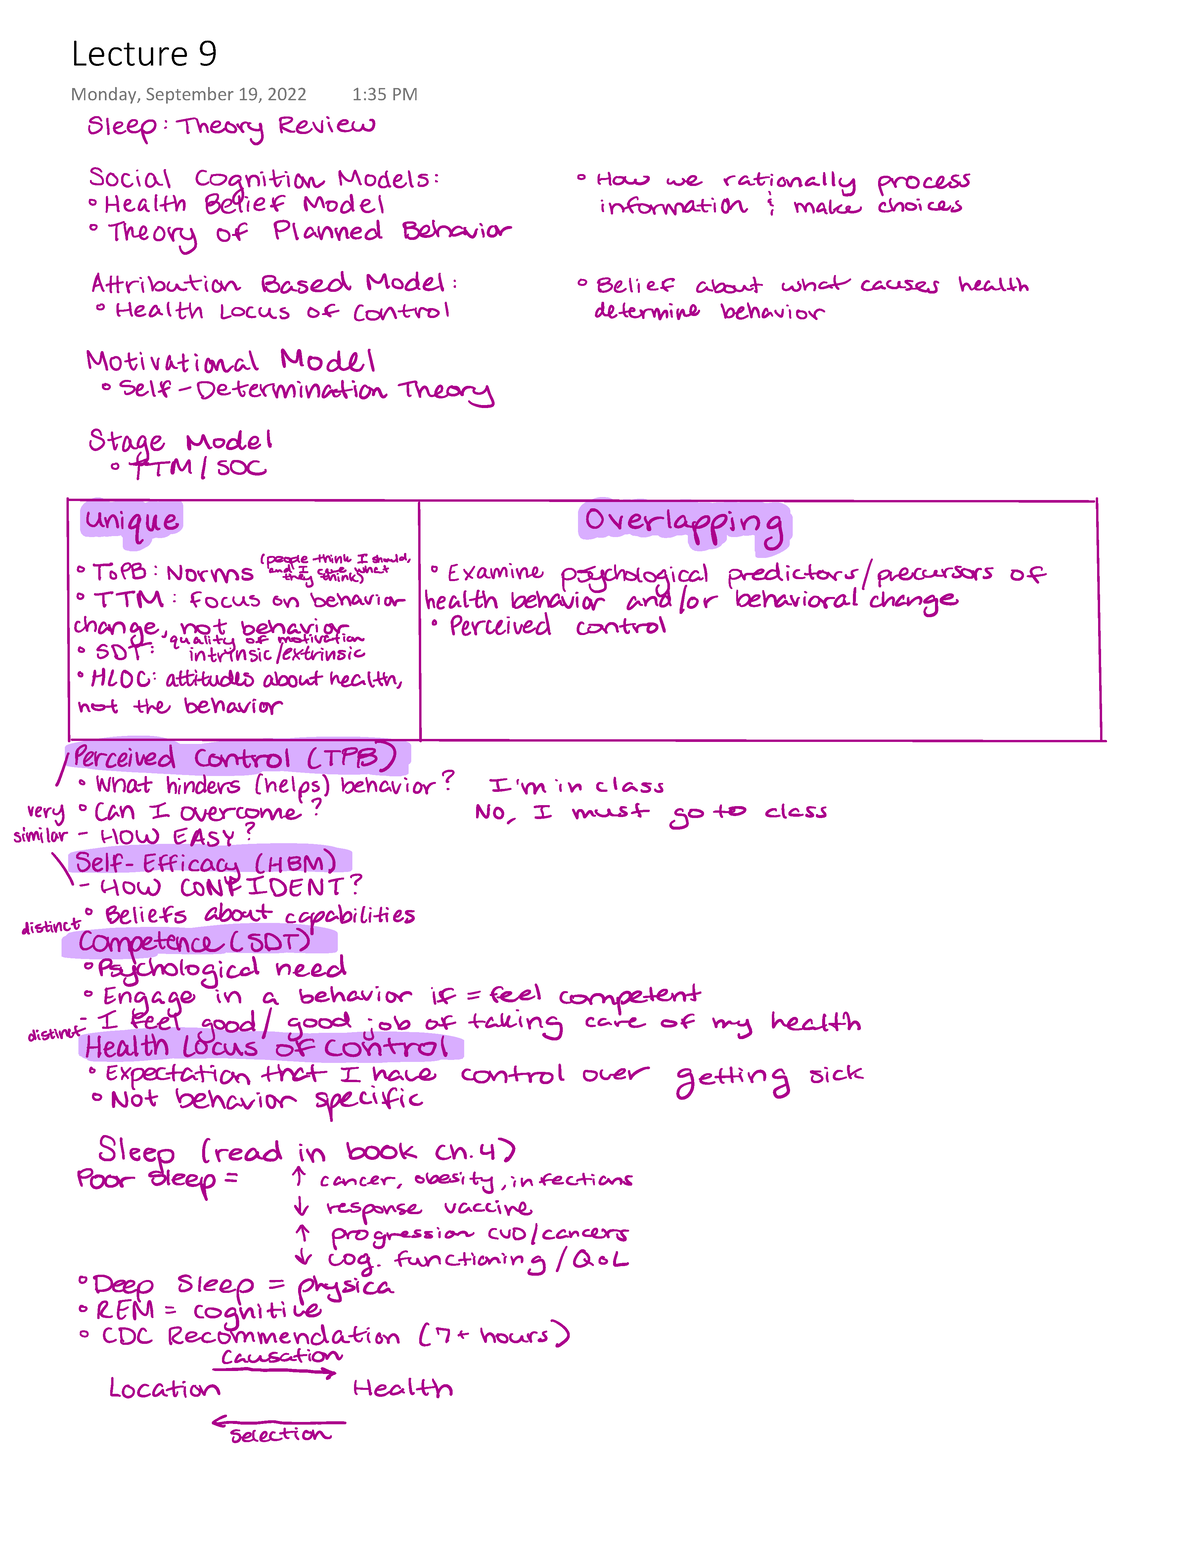 Lecture 9
Monday, September 19, 2022 1:35 PM
Sleep: Theory Review
Social Cognition Models:
• Health Belief Model
• Theory of Planned Behavior
• How we rationally process
information & make choices
Attribution Based Model:
• Health Locus of Control
• Belief about what causes health
determine behavior
Motivational Model
• Self-Determination Theory
Stage Model
• TTM/SOC
Unique
• ToPB: Norms (people think I should,
and I care what
they think)
• TTM: focus on behavior
change, not behavior
• SDT: quality of motivation
intrinsic/extrinsic
• HLOC: attitudes about health,
not the behavior
Overlapping
• Examine psychological predictors/precursors of
health behavior and/or behavioral change
• Perceived control
Perceived Control (TPB)
• What hinders (helps) behavior? I'm in class
• Can I overcome? No, I must go to class
- HOW EASY?
very
similar
Self-Efficacy (HBM)
- HOW CONFIDENT?
• Beliefs about capabilities
distinct
Competence (SDT)
• Psychological need
• Engage in a behavior if = feel competent
- I feel good/good job of taking care of my health
distinct
Health Locus of Control
• Expectation that I have control over getting sick
• Not behavior specific
Sleep (read in book ch.4)
Poor Sleep = ↑ cancer, obesity, infections
↓ response vaccine
↑ progression CVD/cancers
↓ cog. functioning/QoL
• Deep Sleep = physica
• REM = cognitive
• CDC Recommendation (7+ hours)
Causation
Location → Health
←
Selection